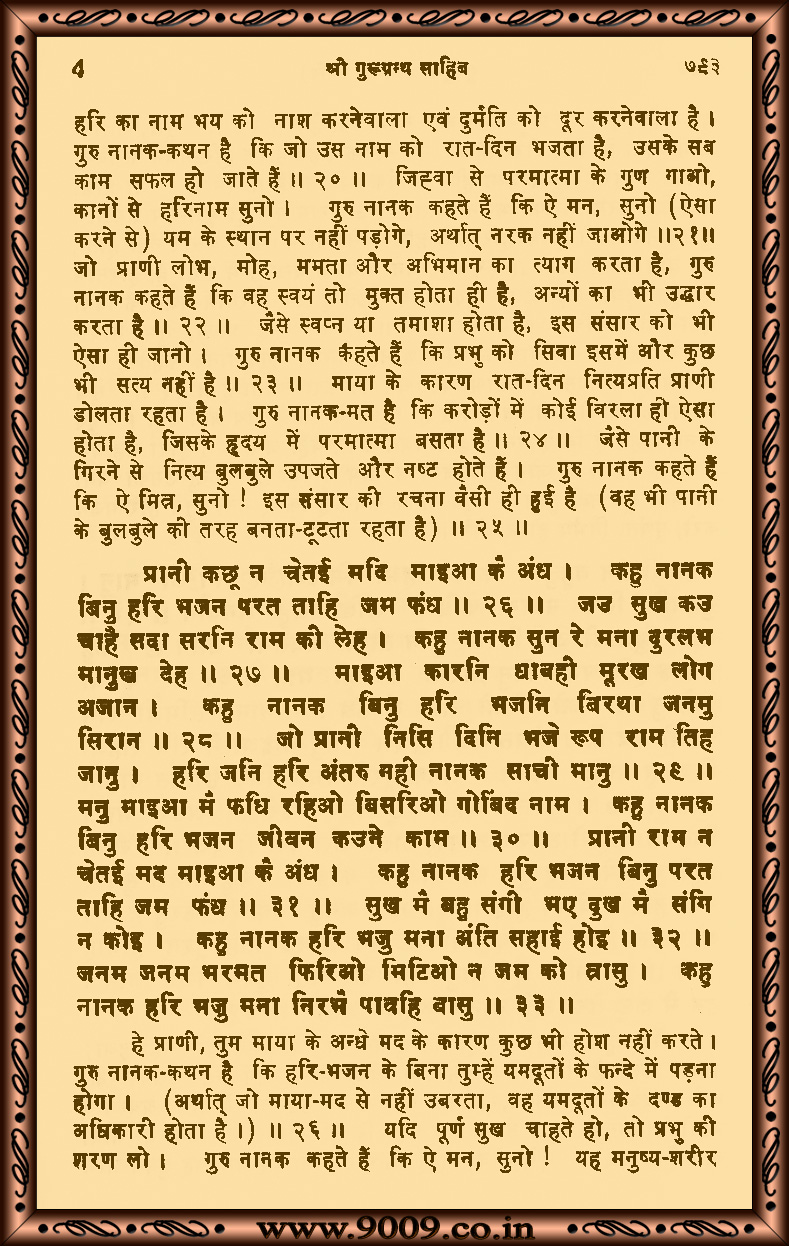 4 श्री गुरूग्रन्थ साहिब ७९३
हरि का नाम भय को नाश करनेवाला एवं दुर्मति को दूर करनेवाला है ।
गुरु नानक-कथन है कि जो उस नाम को रात-दिन भजता है, उसके सब
काम सफल हो जाते हैं ॥ २० ॥ जिह्वा से परमात्मा के गुण गाओ,
कानों से हरिनाम सुनो । गुरु नानक कहते हैं कि ऐ मन, सुनो (ऐसा
करने से) यम के स्थान पर नहीं पड़ोगे, अर्थात् नरक नहीं जाओगे ॥२१॥
जो प्राणी लोभ, मोह, ममता और अभिमान का त्याग करता है, गुरु
नानक कहते हैं कि वह स्वयं तो मुक्त होता ही है, अन्यों का भी उद्धार
करता है ॥ २२ ॥ जैसे स्वप्न या तमाशा होता है, इस संसार को भी
ऐसा ही जानो । गुरु नानक कहते हैं कि प्रभु को सिवा इसमें और कुछ
भी सत्य नहीं है ॥ २३ ॥ माया के कारण रात-दिन नित्यप्रति प्राणी
डोलता रहता है । गुरु नानक-मत है कि करोड़ों में कोई विरला ही ऐसा
होता है, जिसके हृदय में परमात्मा बसता है ॥ २४ ॥ जैसे पानी के
गिरने से नित्य बुलबुले उपजते और नष्ट होते हैं । गुरु नानक कहते हैं
कि ऐ मित्र, सुनो ! इस संसार की रचना वैसी ही हुई है (वह भी पानी
के बुलबुले की तरह बनता-टूटता रहता है) ॥ २५ ॥
प्रानी कछू न चेतई मदि माइआ कै अंध । कहु नानक
बिनु हरि भजन परत ताहि जम फंध ॥ २६ ॥ जउ सुख कउ
चाहै सदा सरनि राम की लेह । कहु नानक सुन रे मना दुरलभ
मानुख देह ॥ २७ ॥ माइआ कारनि धावही मूरख लोग
अजान । कहु नानक बिनु हरि भजनि बिरथा जनमु
सिरान ॥ २८ ॥ जो प्रानी निसि दिनि भजे रूप राम तिह
जानु । हरि जनि हरि अंतरु नही नानक साची मानु ॥ २९ ॥
मनु माइआ मै फधि रहिओ बिसरिओ गोबिंद नाम । कहु नानक
बिनु हरि भजन जीवन कउने काम ॥ ३० ॥ प्रानी राम न
चेतई मद माइआ कै अंध । कहु नानक हरि भजन बिनु परत
ताहि जम फंध ॥ ३१ ॥ सुख मै बहु संगी भए दुख मै संगि
न कोइ । कहु नानक हरि भजु मना अंति सहाई होइ ॥ ३२ ॥
जनम जनम भरमत फिरिओ मिटिओ न जम को त्रासु । कहु
नानक हरि भजु मना निरभै पावहि बासु ॥ ३३ ॥
हे प्राणी, तुम माया के अन्धे मद के कारण कुछ भी होश नहीं करते ।
गुरु नानक-कथन है कि हरि-भजन के बिना तुम्हें यमदूतों के फन्दे में पड़ना
होगा । (अर्थात् जो माया-मद से नहीं उबरता, वह यमदूतों के दण्ड का
अधिकारी होता है ।) ॥ २६ ॥ यदि पूर्ण सुख चाहते हो, तो प्रभु की
शरण लो । गुरु नानक कहते हैं कि ऐ मन, सुनो ! यह मनुष्य-शरीर
www.9009.co.in